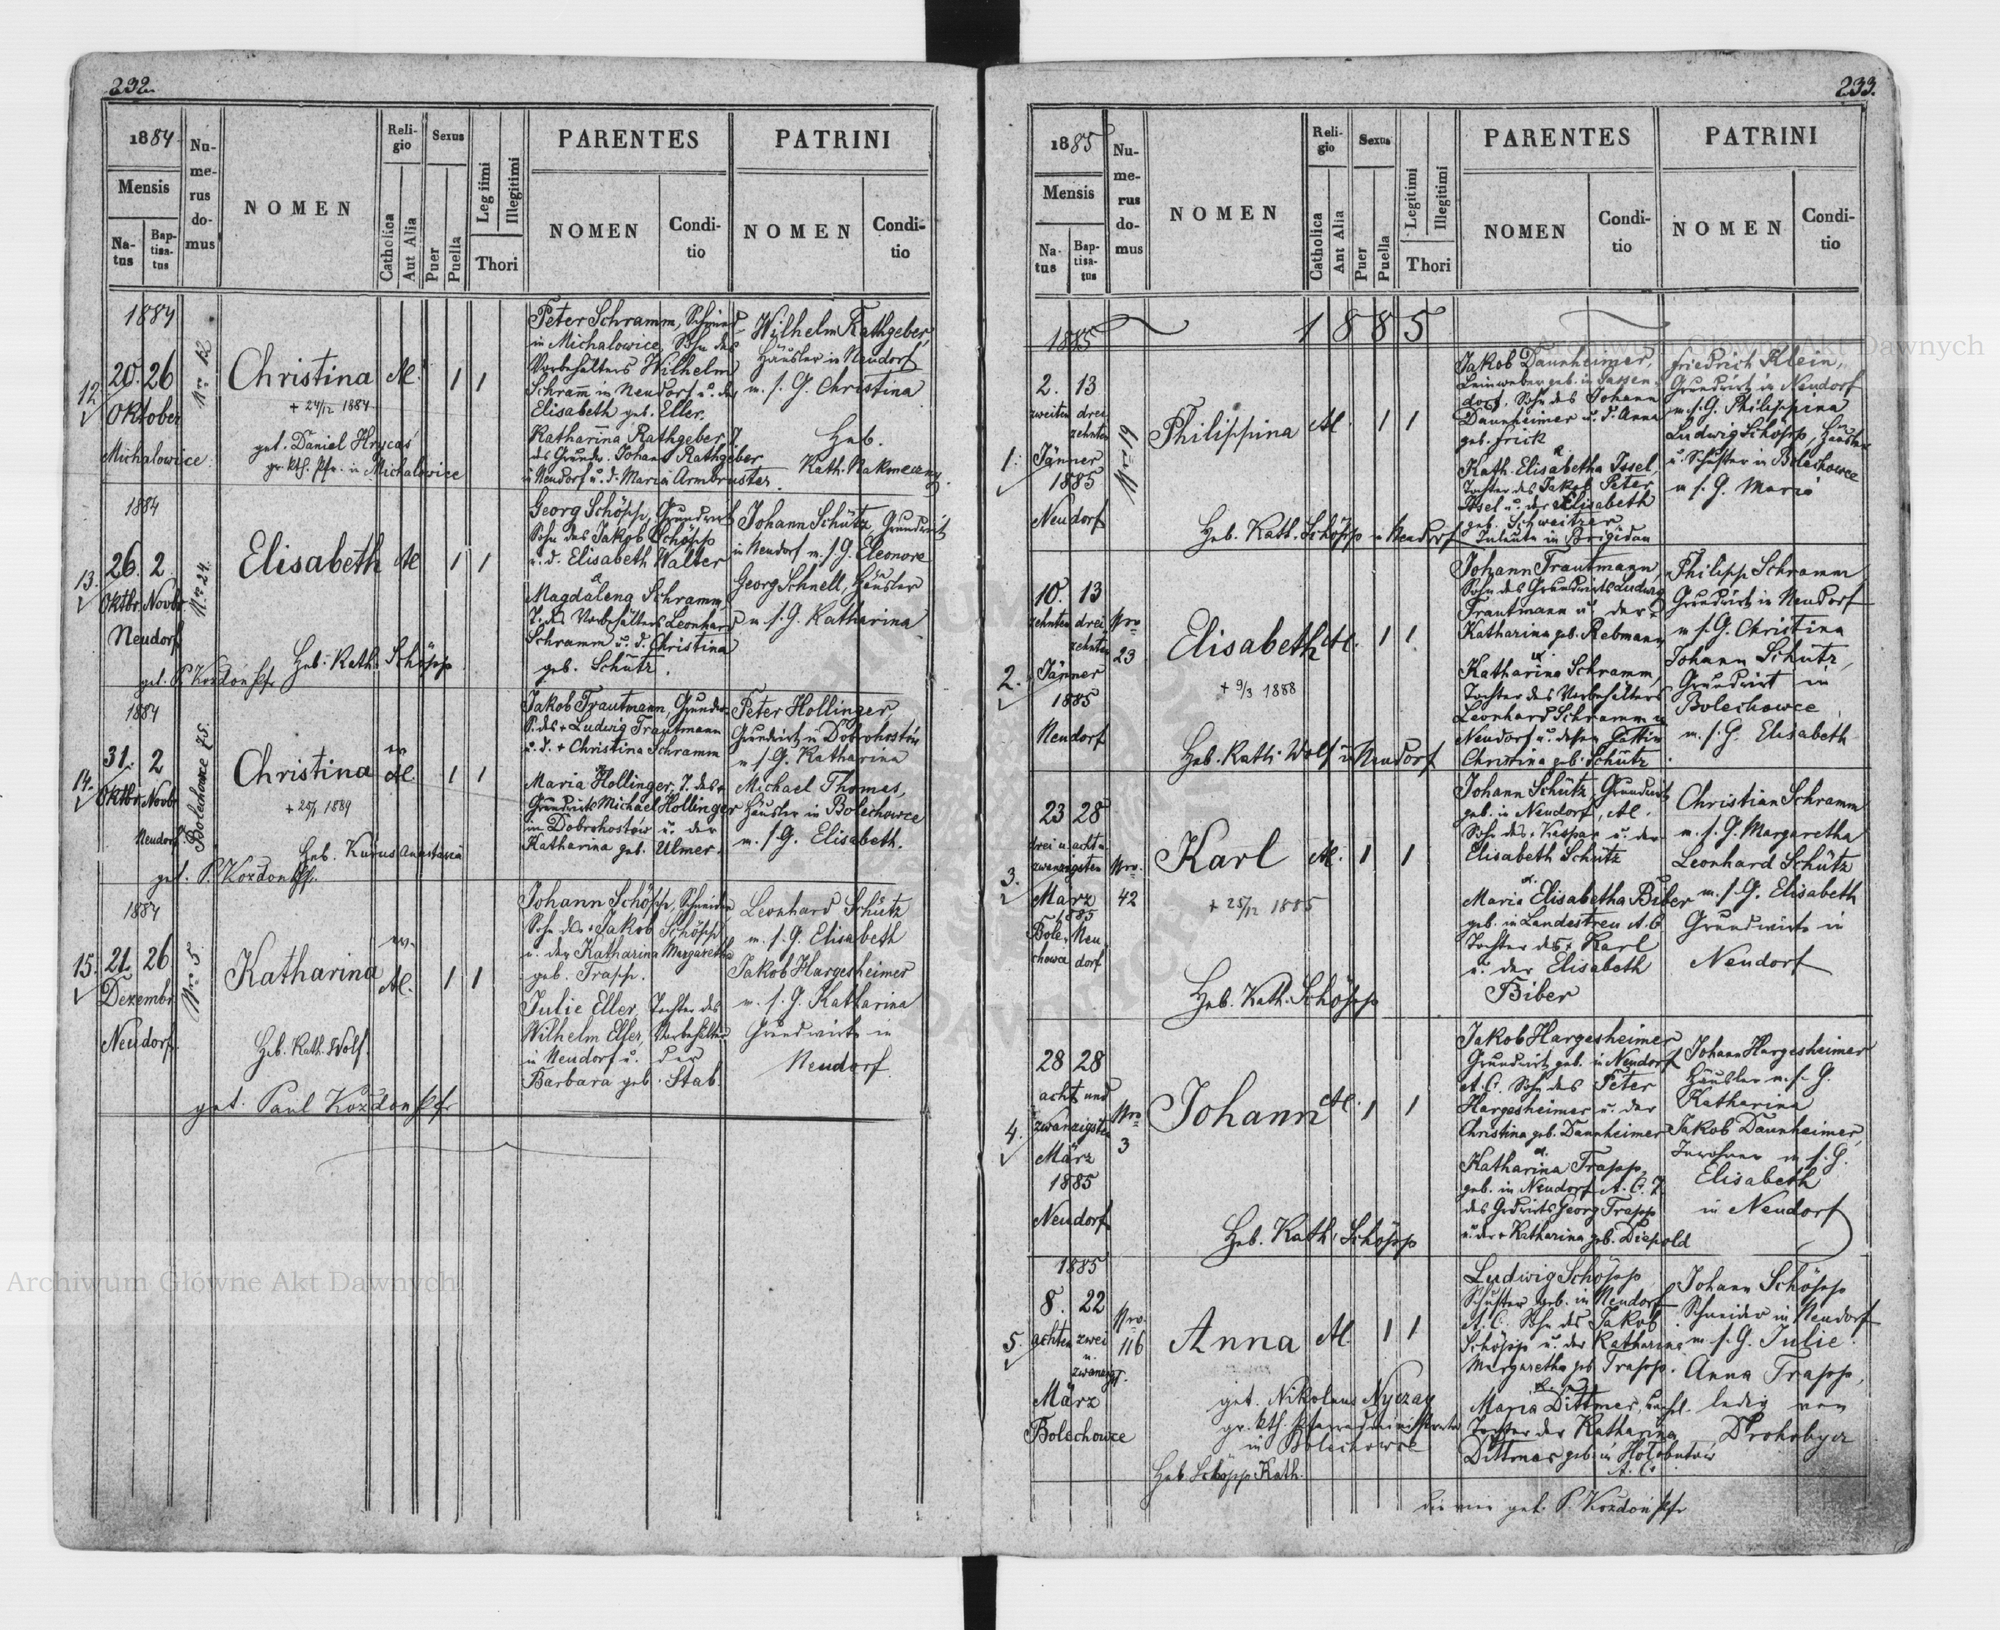 232.
1884
Mensis
Na-
tus
Bap-
tisa-
tus
Nu-
me-
rus
do-
mus
NOMEN
Reli-
gio
Catholica
Aut Alia
Sexus
Puer
Puella
Legitimi
Illegitimi
Thori
PARENTES
NOMEN
Condi-
tio
PATRINI
NOMEN
Condi-
tio
1884
12.
20. 26
Oktober
Michalowice
Nro 12
Christina
+ 24/12 1884
get. Daniel Hrycaś
gr. kth. Pfr. in Michalowice
A.
1
1
Peter Schramm, Schmied
in Michalowice, Sohn des
Vorbehälters Wilhelm
Schram̄ in Neudorf u. der
Elisabeth geb. Eller.
Katharina Rathgeber, T.
des Grundw. Johann Rathgeber
in Neudorf u. d. Maria Armbruster.
Wilhelm Rathgeber,
Häusler in Neudorf
m. s. G. Christina
Heb.
Kath.
1884
13.
26. 2.
Oktbr. Novbr.
Neudorf
Nro 24.
Elisabeth
Heb. Kath. Schöpp
get. P. Kozdon Pfr
A.
1
1
Georg Schöpp, Grundwirt
Sohn des Jakob Schöpp
u. d. Elisabeth Walter
Magdalena Schramm
T. des Vorbehälters Leonhard
Schramm u. d. Christina
geb. Schütz.
Johann Schütz, Grundwirt
in Neudorf m. s. G. Eleonore
Georg Schnell, Häusler
u. s. G. Katharina
1884
14.
31. 2
Oktbr. Novb
Neudorf
Bolechowce 75.
Christina
+ 25/1 1889
Heb. Kurus Anastasia
get. P. Kozdon Pfr.
ev.
A.
1
1
Jakob Trautmann, Grundw.
S. des + Ludwig Trautmann
u. d. + Christina Schramm
Maria Hollinger, T. des +
Grundwirts Michael Hollinger
in Dobrohostów u. der
Katharina geb. Ulmer.
Peter Hollinger
Grundwirt in Dobrohostów
u. s. G. Katharina
Michael Thomas,
Häusler in Bolechowce
m. s. G. Elisabeth.
1884
15.
21. 26
Dezembr.
Neudorf.
Nro 5.
Katharina
Heb. Kath. Wolf.
get. Paul Kozdon Pfr
ev.
A.
1
1
Johann Schöpp, Schneider
Sohn des + Jakob Schöpp
u. der Katharina Margaretha
geb. Trapp.
Julie Eller, Tochter des
Wilhelm Eller, Vorbehälter
in Neudorf u. der
Barbara geb. Stab.
Leonhard Schütz
m. s. G. Elisabeth
Jakob Hargesheimer
m. s. G. Katharina
Grundwirte in
Neudorf.
233.
1885
Mensis
Na-
tus
Bap-
tisa-
tus
Nu-
me-
rus
do-
mus
NOMEN
Reli-
gio
Catholica
Ant Alia
Sexus
Puer
Puella
Legitimi
Illegitimi
Thori
PARENTES
NOMEN
Condi-
tio
PATRINI
NOMEN
Condi-
tio
1885
1885
1.
2. 13
zweiten drei
zehnten
Jänner
1885
Neudorf
Nro 19
Philippina
Heb. Kath. Schöpp in Neudorf
A.
1
1
Jakob Dannheimer,
Leinweber geb. in Sassen-
dorf, Sohn des Johann
Dannheimer u. d. Anna
geb. Frick
u.
Kath. Elisabetha Issel,
Tochter des Jakob Peter
Issel u. der Elisabeth
geb. Schweitzer
Inleute in Brigidau
Friedrich Klein,
Grundwirt in Neudorf
m. s. G. Philippina
Ludwig Schöpp, Häusler
u. Schuster in Bolechowce
u. s. G. Maria
2.
10. 13
zehnten drei
zehnten
Jänner
1885
Neudorf
Nro
23
Elisabeth
+ 9/3 1888
Heb. Kath. Wolf in Neudorf
A.
1
1
Johann Trautmann,
Sohn des Grundwirts Ludwig
Trautmann u. der +
Katharina geb. Rebmann
u.
Katharina Schramm,
Tochter des Vorbehälters
Leonhard Schramm in
Neudorf u. dessen Gattin
Christina geb. Schütz
Philipp Schramm
Grundwirt in Neudorf
u. s. G. Christina
Johann Schütz,
Grundwirt in
Bolechowce
m. s. G. Elisabeth
3.
23 28
drei u. acht u.
zwanzigsten
März
1885
Bole- Neu
chowce dorf
Nro.
42
Karl
+ 25/12 1885
Heb. Kath. Schöpp
A.
1
1
Johann Schütz, Grundwirt
geb. in Neudorf, A.
Sohn des + Kaspar u. der
Elisabeth Schütz
u.
Maria Elisabetha Biber
geb. in Landestreu A. C
Tochter des + Karl
u. der Elisabeth
Biber
Christian Schramm
m. s. G. Margaretha
Leonhard Schütz
m. s. G. Elisabeth
Grundwirte in
Neudorf
4.
28 28
acht und
zwanzigsten
März
1885
Neudorf
Nro
3
Johann
Heb. Kath. Schöpp
A.
1
1
Jakob Hargesheimer
Grundwirt geb. in Neudorf
A. C. Sohn des Peter
Hargesheimer u. der
Christina geb. Dannheimer
u.
Katharina Trapp,
geb. in Neudorf A. C. T.
des Grdwirts Georg Trapp
u. der + Katharina geb. Diepold
Johann Hargesheimer
Häusler m. s. G.
Katharina
Jakob Dannheimer,
Inwohner m. s. G.
Elisabeth
in Neudorf
1885
5.
8. 22
achten zwei
u.
zwanzigst.
März
Bolechowce
Nro.
116
Anna
get. Nikolaus Nyczay
gr. kth. Pfarradministrator
in Bolechowce
Heb. Schöpp Kath.
A.
1
1
Ludwig Schöpp
Schuster geb. in Neudorf
A. C. Sohn des Jakob
Schöpp u. der Katharina
Margaretha geb. Trapp.
Maria Dittmer,
Tochter der Katharina
Dittmar geb. in Hołobutów
A. C.
Johann Schöpp
Schneider in Neudorf
m. s. G. Julie.
Anna Trapp,
ledig von
Drohobycz
get. P. Kozdon Pfr
Archiwum Główne Akt Dawnych
Archiwum Główne Akt Dawnych